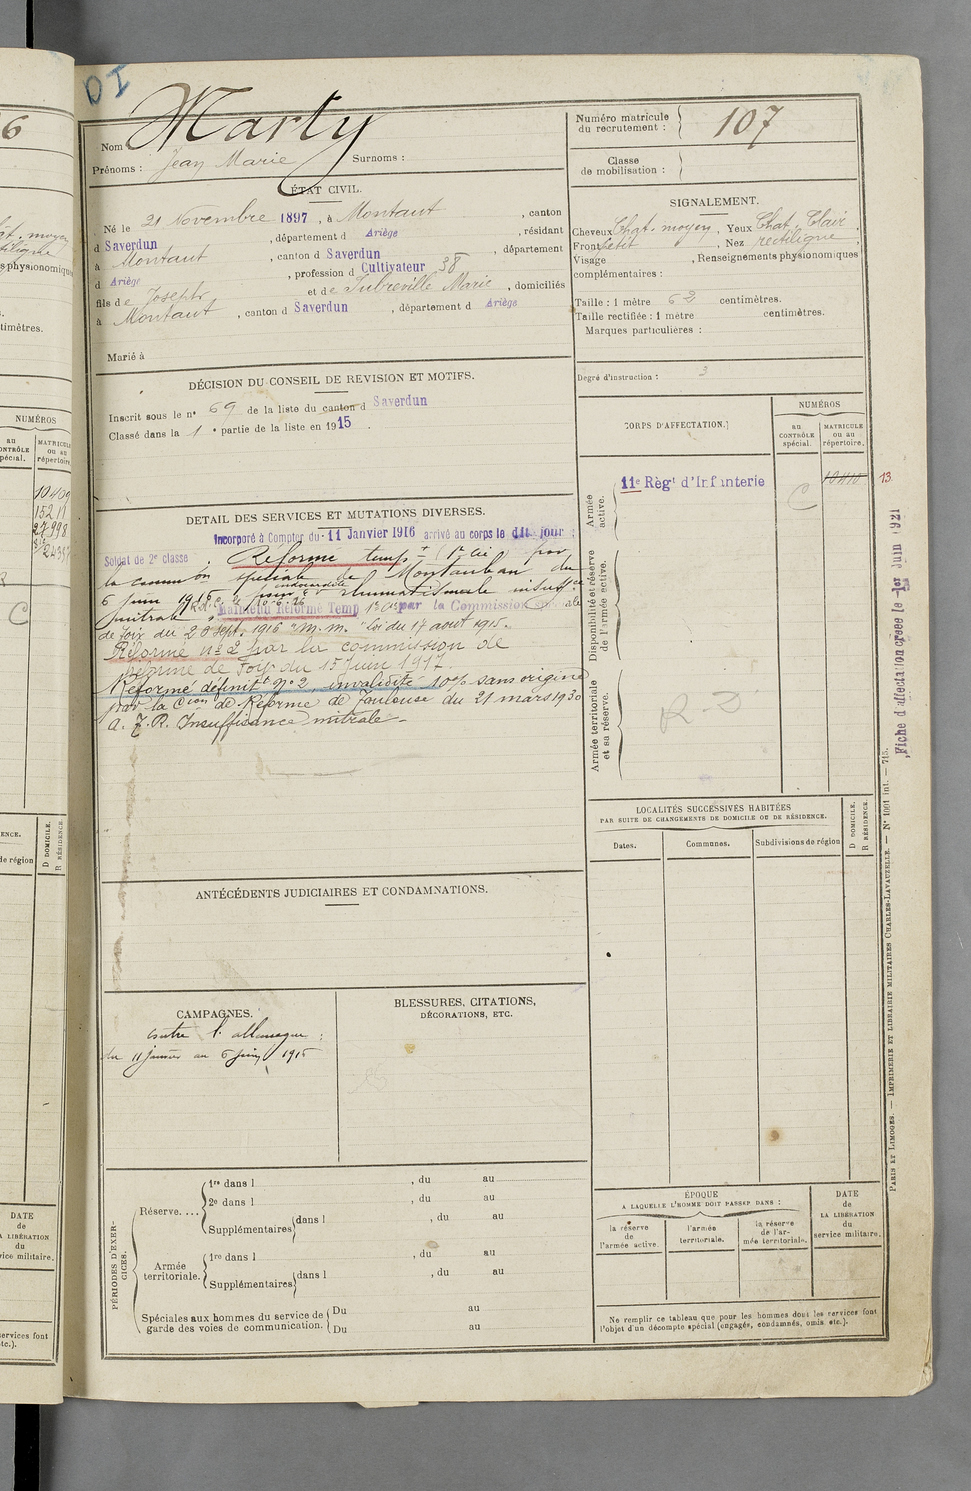 Marty
Nom
Prénoms : Jean Marie Surnoms :
Numéro matricule
du recrutement : 107
Classe
de mobilisation :
ÉTAT CIVIL.
Né le 21 Novembre 1897, à Montaut, canton
d Saverdun, département d Ariège, résidant
à Montaut, canton d Saverdun, département
d Ariège, profession d Cultivateur 38
fils de Joseph et de Marie, domiciliés
à Montaut, canton d Saverdun, département d Ariège
Marié à
SIGNALEMENT.
Cheveux Chat. moyen, Yeux Chat. Clair,
Front petit, Nez rectiligne,
Visage , Renseignements physionomiques
complémentaires :
Taille : 1 mètre 62 centimètres.
Taille rectifiée : 1 mètre centimètres.
Marques particulières :
Degré d'instruction : 3
DÉCISION DU CONSEIL DE REVISION ET MOTIFS.
Inscrit sous le n° 69 de la liste du canton d Saverdun
Classé dans la 1e partie de la liste en 1915.
DÉTAIL DES SERVICES ET MUTATIONS DIVERSES.
Incorporé à Compter du 11 Janvier 1916 arrivé au corps le dit jour
Soldat de 2e classe. Réformé temp. par
la common spéciale de Montauban du
6 Juin 1916 pour endocardite rhumatismale insuffce
mitrale Maintenu Réformé Temp par la Commission spéciale
de Foix du 20 sept. 1916 "m.m." loi du 17 aout 1915.
Réformé n°2 par la commission de
réforme de Foix du 15 Juin 1917.
Réformé définitt n°2, invalidité 10% sans origine
par la Cion de Réforme de Toulouse du 21 mars 1930
a. F. R. Insuffisance mitrale
CORPS D'AFFECTATION.
NUMÉROS
au
CONTRÔLE
spécial.
MATRICULE
ou au
répertoire.
Armée
active.
11e Régt d'Infanterie
C
10410
13
Disponibilité et réserve
de l'armée active.
Armée territoriale
et sa réserve.
R-D
Fiche d'affectation créée le 1er Juin 1921
LOCALITÉS SUCCESSIVES HABITÉES
PAR SUITE DE CHANGEMENTS DE DOMICILE OU DE RÉSIDENCE.
Dates.
Communes.
Subdivisions de région
D DOMICILE.
R RÉSIDENCE.
ANTÉCÉDENTS JUDICIAIRES ET CONDAMNATIONS.
CAMPAGNES.
contre l'allemagne :
du 11 janvier au 6 juin 1916
BLESSURES, CITATIONS,
DÉCORATIONS, ETC.
PÉRIODES D'EXERCICES.
Réserve....
1re dans l , du au
2e dans l , du au
Supplémentaires dans l , du au
Armée
territoriale.
1re dans l , du au
Supplémentaires dans l , du au
Spéciales aux hommes du service de
garde des voies de communication.
Du au
Du au
ÉPOQUE
A LAQUELLE L'HOMME DOIT PASSER DANS :
la réserve
de
l'armée active.
l'armée
territoriale.
la réserve
de l'ar-
mée territoriale.
DATE
de
LA LIBÉRATION
du
service militaire.
Ne remplir ce tableau que pour les hommes dont les services font
l'objet d'un décompte spécial (engagés, condamnés, omis etc.).
PARIS ET LIMOGES. — IMPRIMERIE ET LIBRAIRIE MILITAIRES CHARLES-LAVAUZELLE. — N° 1001 int. — 715.